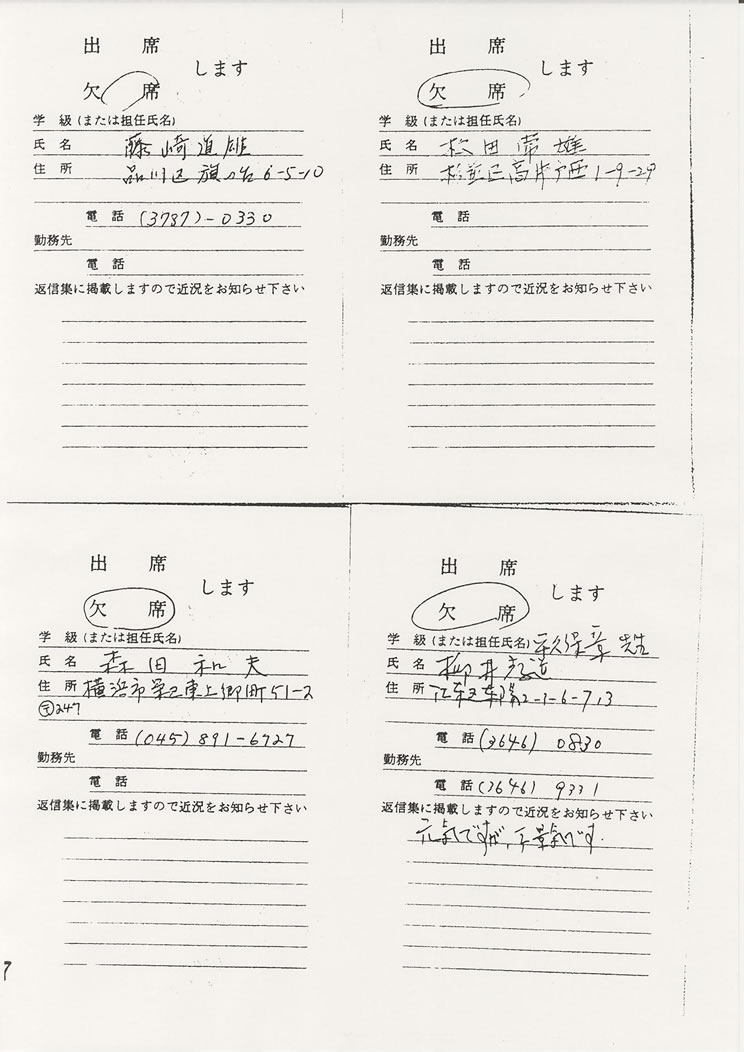 出席
します
欠席
学級(または担任氏名)
氏名 藤崎道雄
住所 品川区旗の台6-5-10
電話 (3787)-0330
勤務先
電話
返信集に掲載しますので近況をお知らせ下さい
出席
します
欠席
学級(または担任氏名)
氏名 牧田常雄
住所 杉並区高井戸西1-9-29
電話
勤務先
電話
返信集に掲載しますので近況をお知らせ下さい
出席
します
欠席
学級(または担任氏名)
氏名 森田和夫
住所 横浜市栄区東上郷町51-2
〒247
電話 (045) 891-6727
勤務先
電話
返信集に掲載しますので近況をお知らせ下さい
出席
します
欠席
学級(または担任氏名) 先生
氏名 柳井
住所 江東区東陽2-1-6-713
電話 (3646) 0830
勤務先
電話 (3646) 9331
返信集に掲載しますので近況をお知らせ下さい
元気ですが、不景気です.
7